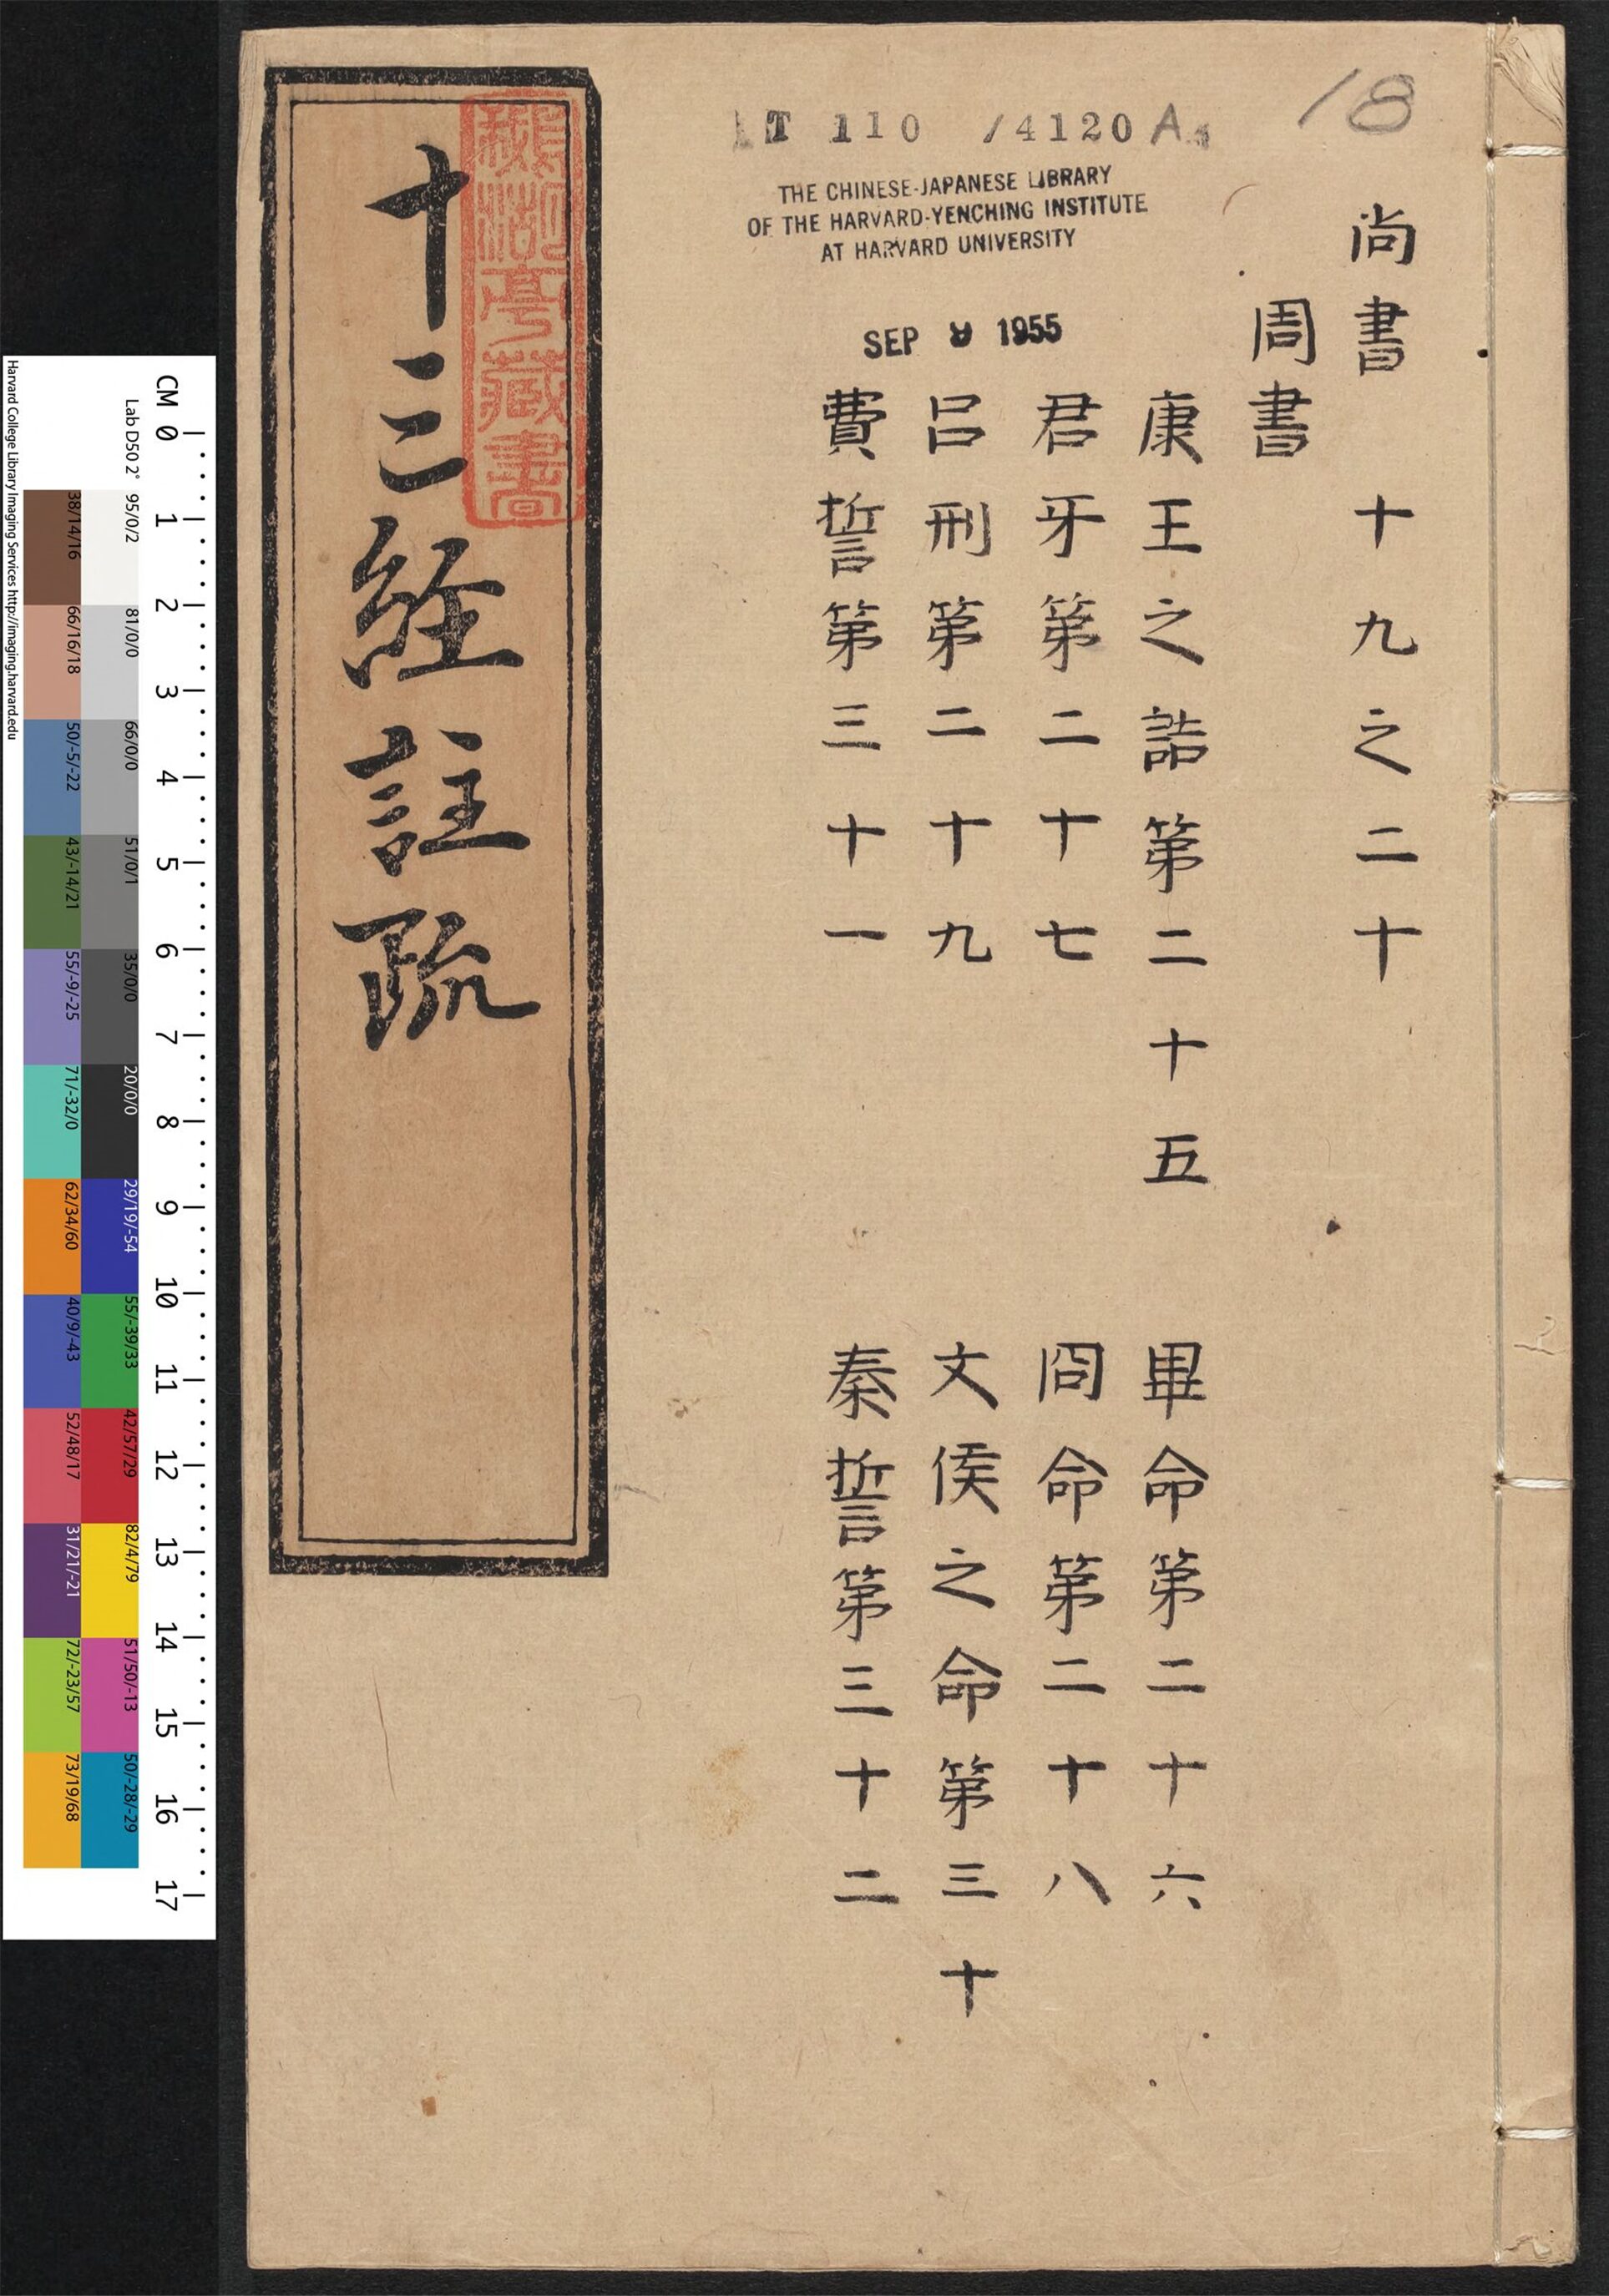 18
T 110 /4120 A
THE CHINESE-JAPANESE LIBRARY
OF THE HARVARD-YENCHING INSTITUTE
AT HARVARD UNIVERSITY
SEP 9 1955
尚書 十九之二十
周書
康王之誥第二十五 畢命第二十六
君牙第二十七 冏命第二十八
呂刑第二十九 文侯之命第三十
費誓第三十一 秦誓第三十二
十三經註疏
亭藏書
CM 0 1 2 3 4 5 6 7 8 9 10 11 12 13 14 15 16 17
Lab D50 2° 95/0/2 81/0/0 66/0/0 51/0/1 35/0/0 20/0/0 29/19/-54 55/-39/33 42/57/29 82/4/79 51/50/-13 50/-28/-29
38/14/16 66/16/18 50/-5/-22 43/-14/21 55/-9/-25 71/-32/0 62/34/60 40/9/-43 52/48/17 31/21/-21 72/-23/57 73/19/68
Harvard College Library Imaging Services http://imaging.harvard.edu